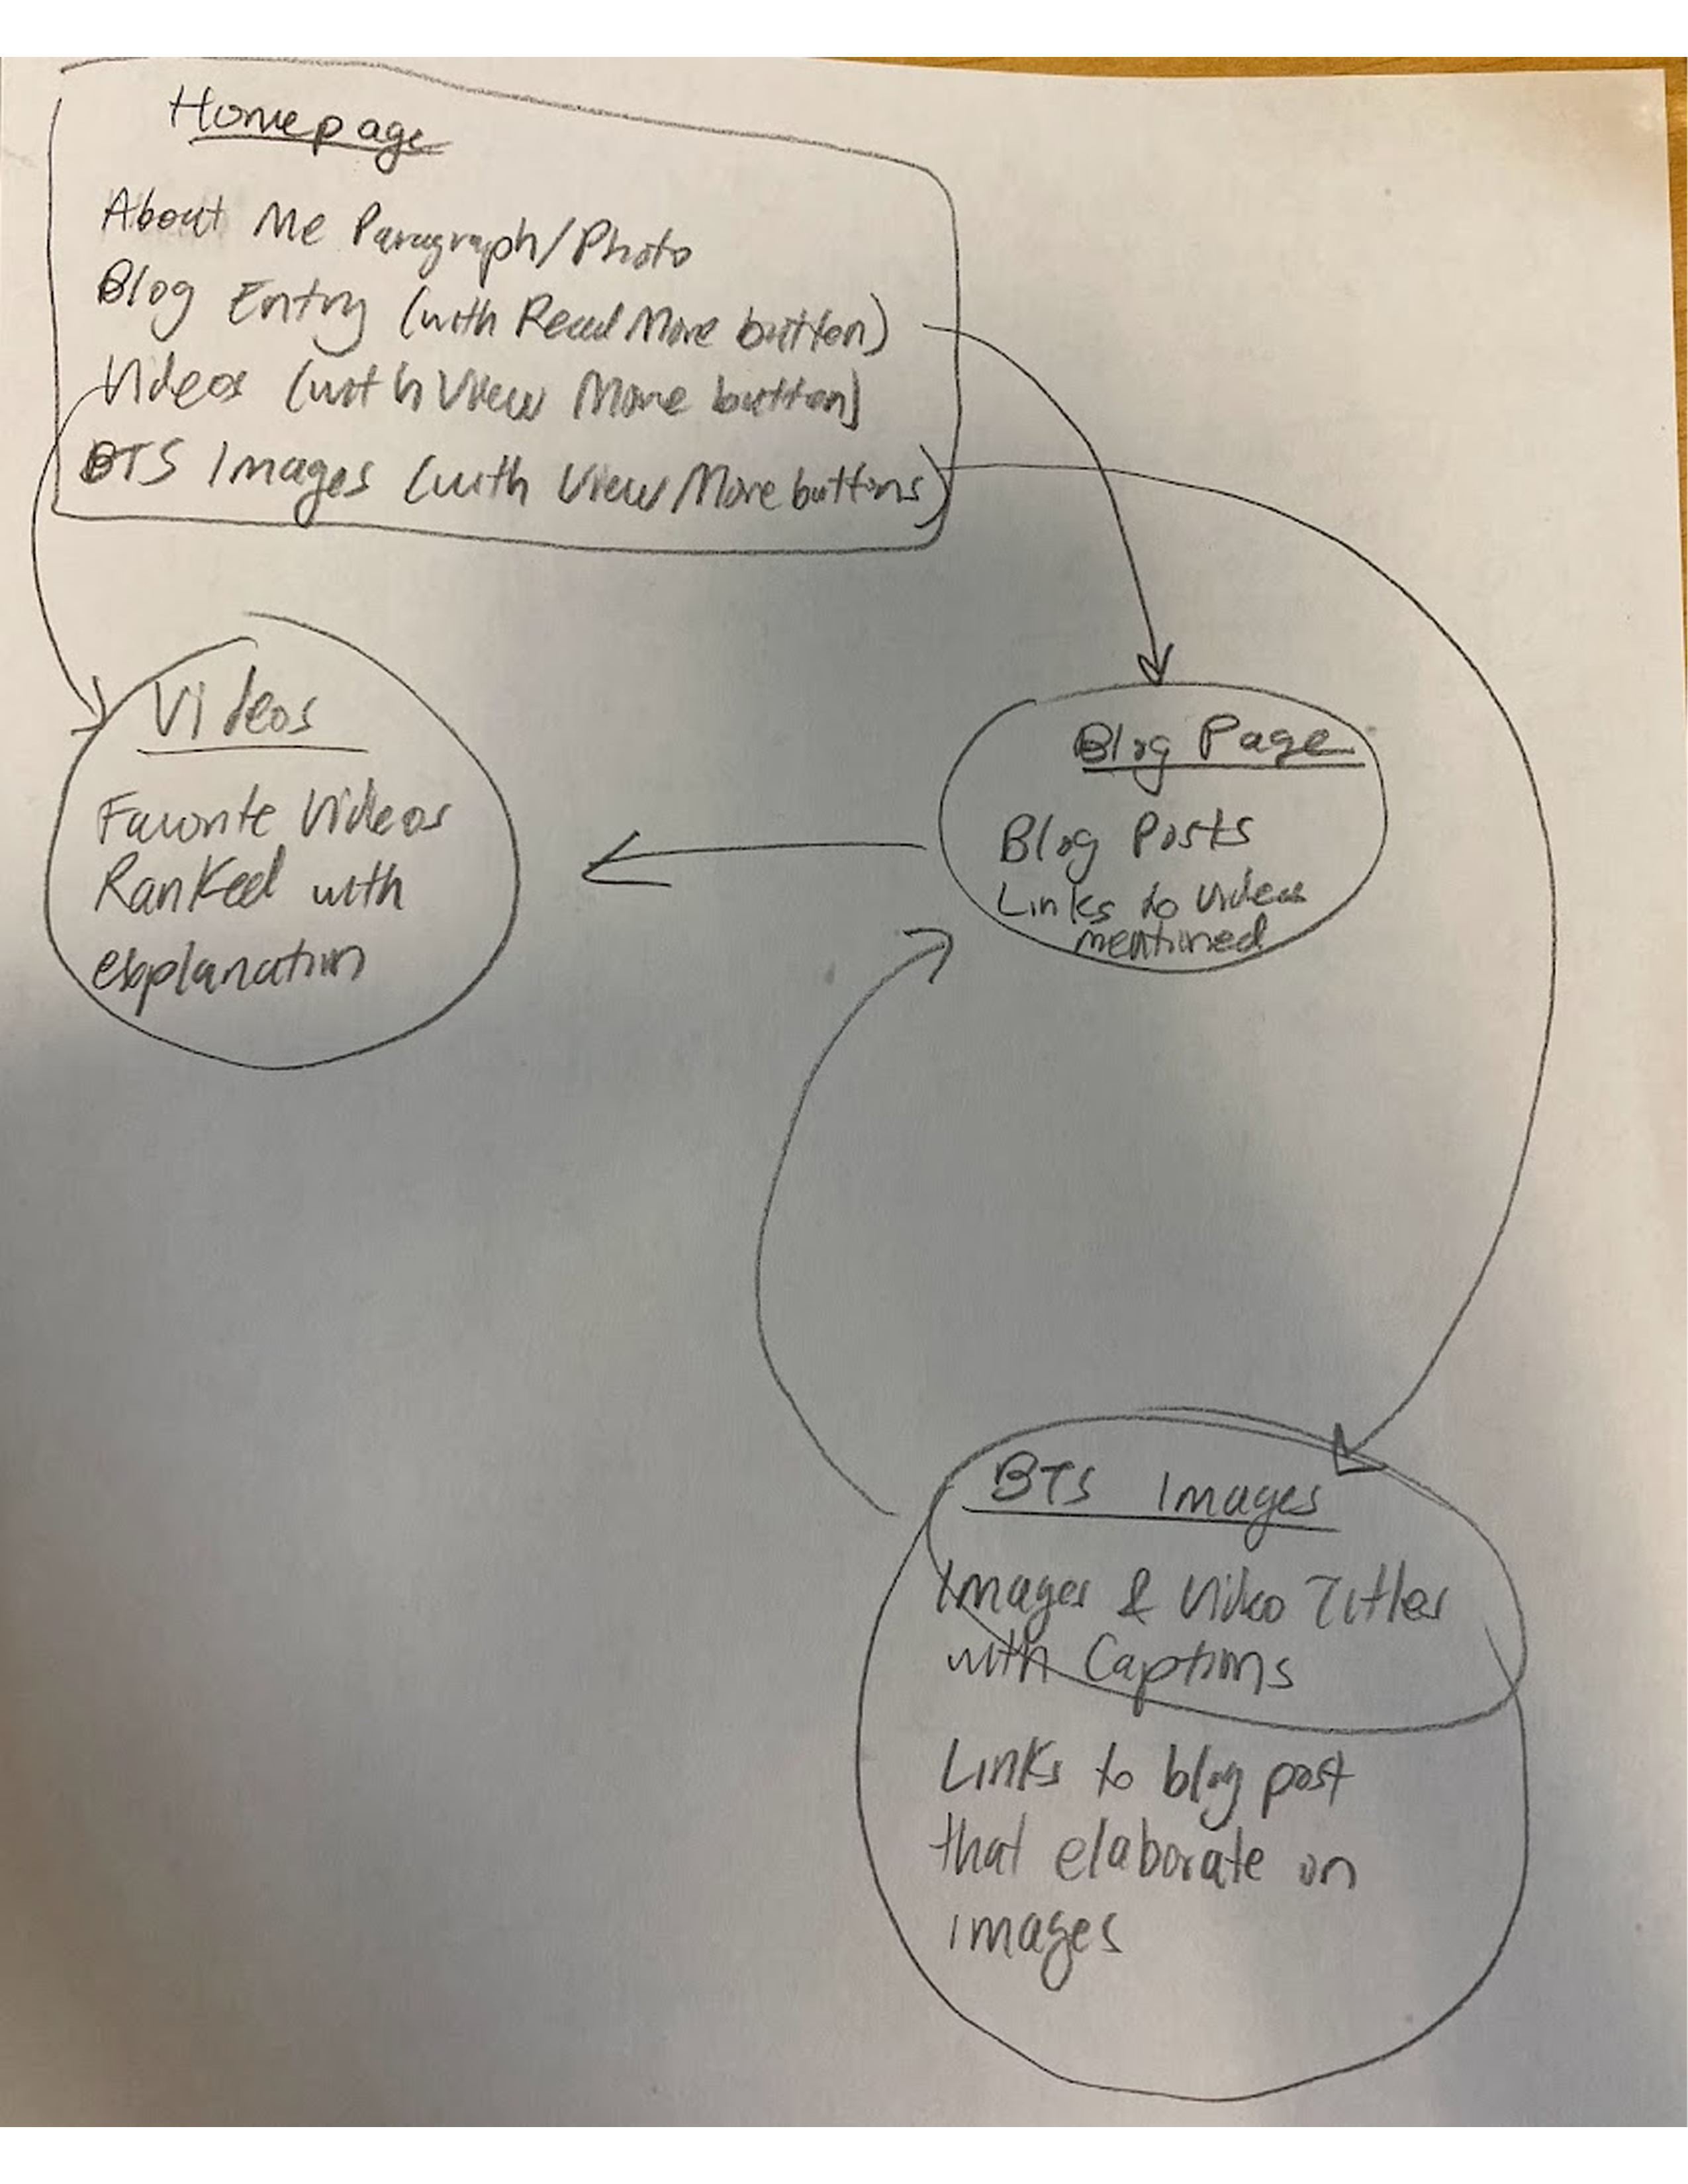 Homepage
About Me Paragraph/Photo
Blog Entry (with Read More button)
Videos (with View More button)
BTS Images (with View More buttons)
Videos
Favorite Videos
Ranked with
explanation
Blog Page
Blog Posts
Links to videos
mentioned
BTS Images
Images & Video Titles
with Captions
Links to blog post
that elaborate on
images